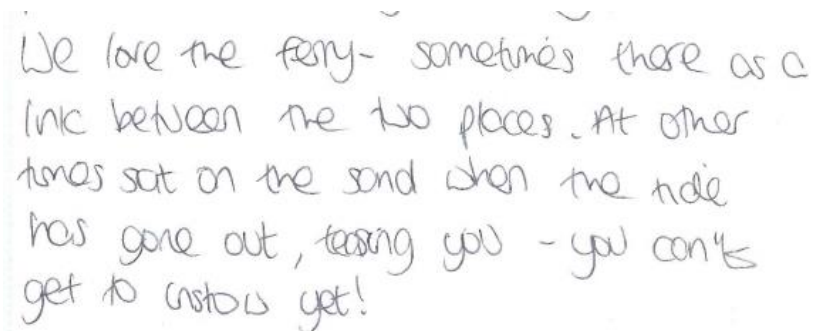 We love the ferry - sometimes there as a
link between the two places. At other
times sat on the sand when the tide
has gone out, teasing you - you can't
get to instow yet!